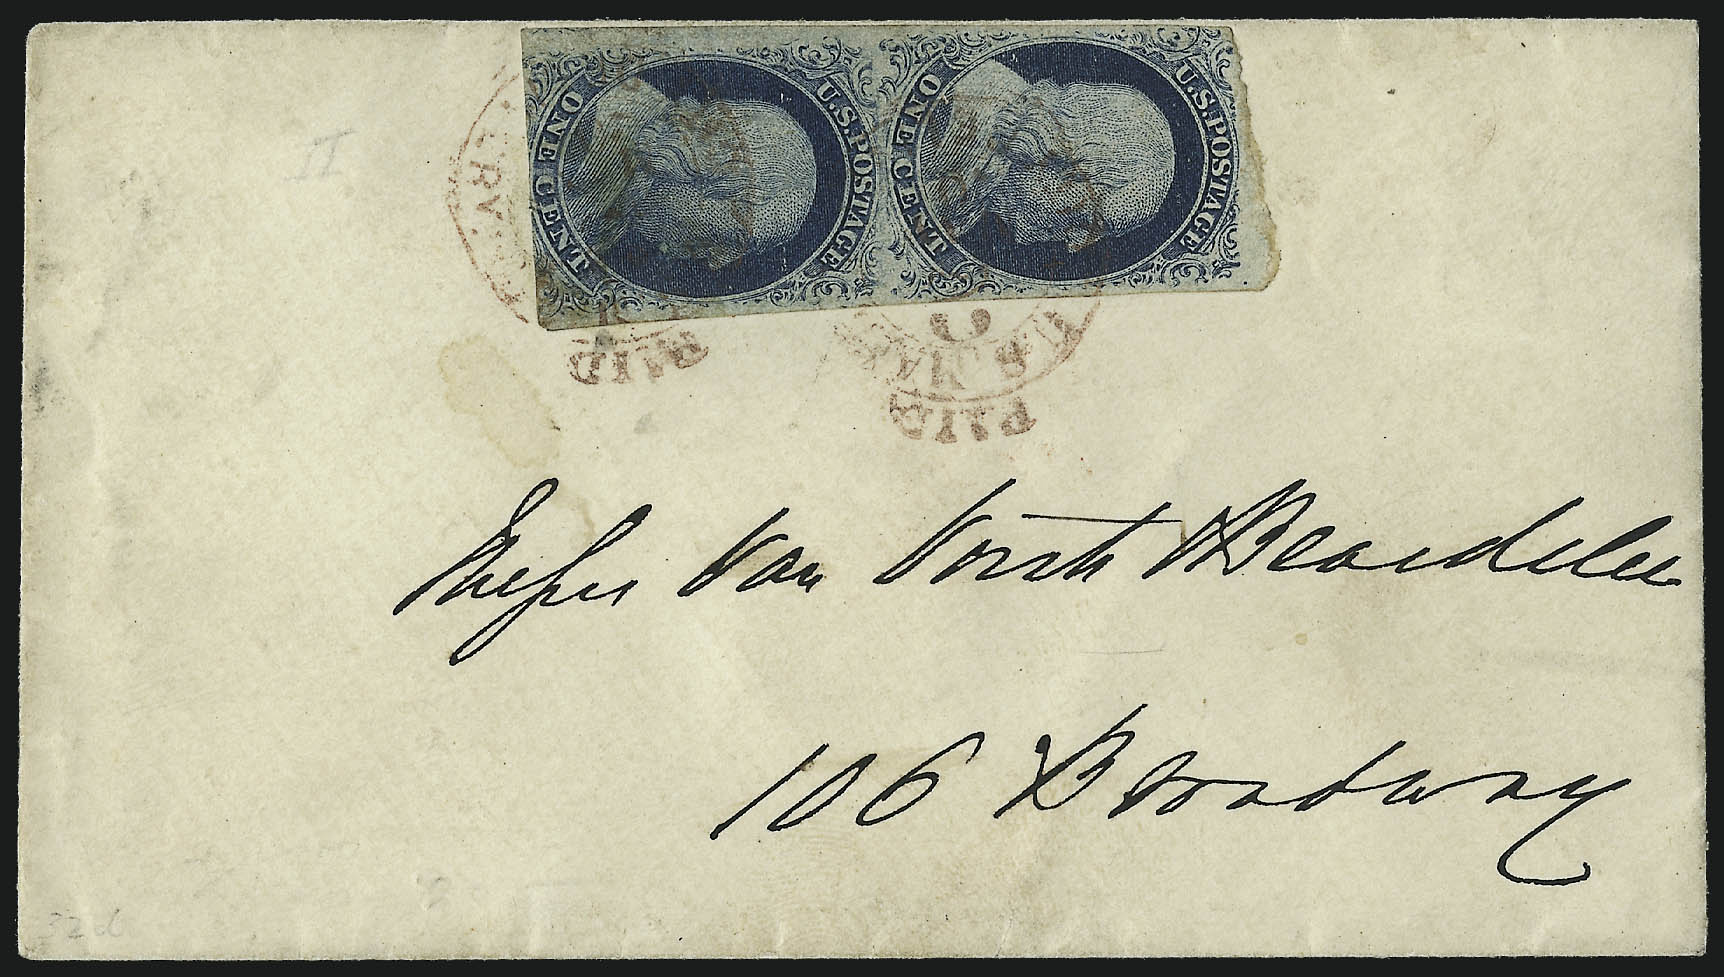 U.S. POSTAGE U.S. POSTAGE
ONE CENT ONE CENT
II
PAID
U.S MAIL
PAID
Messrs Van Vorst & Beardslee
106 Broadway